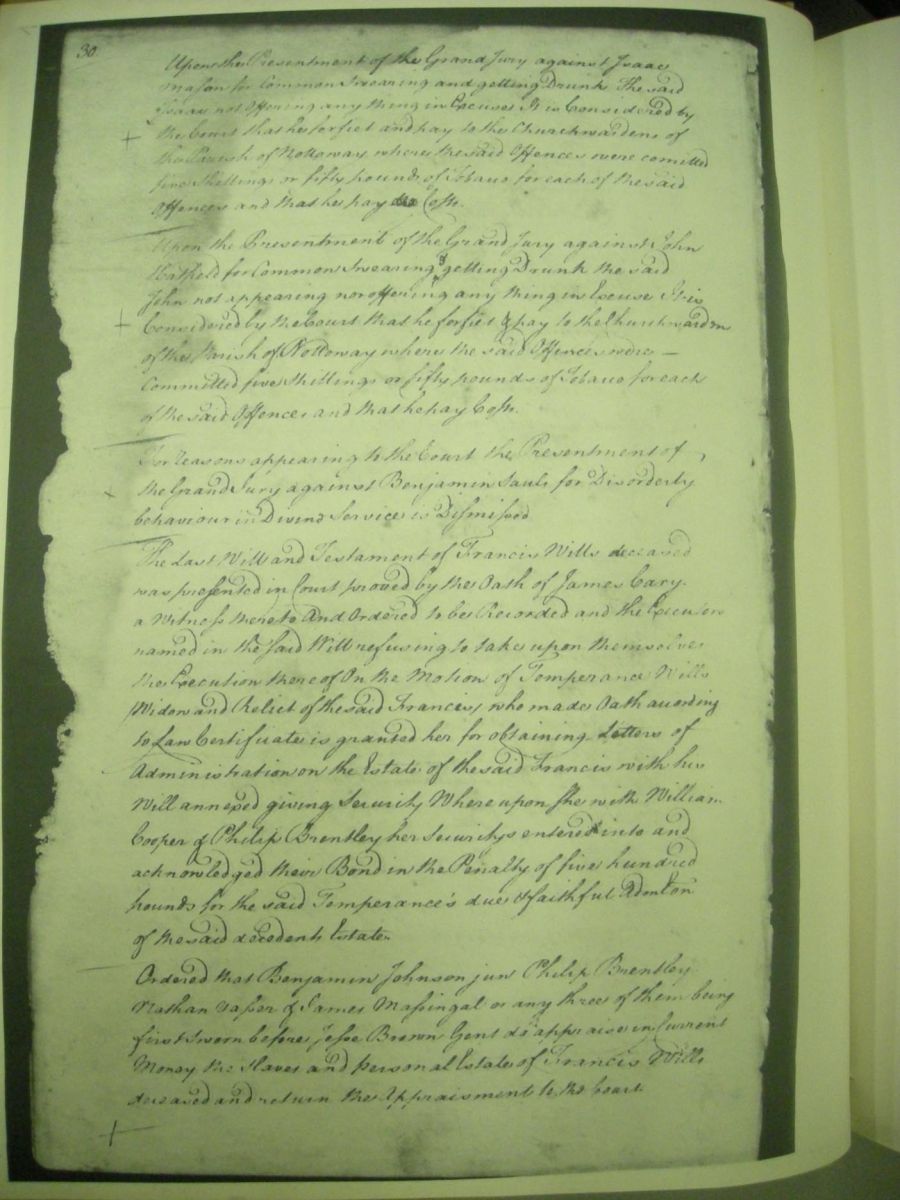 30
Upon the Presentment of the Grand Jury against Isaac
Mason for Common Swearing and getting Drunk The said
Isaac not Offering any thing in Excuse It is Considered by
the Court that he forfiet and pay to the Churchwardens of
the Parish of Nottoway where the said Offences were comitted
five Shillings or fifty pounds of Tobacco for each of the said
Offences and that he pay Costs.
Upon the Presentment of the Grand Jury against John
Hatfield for Common Swearing & getting Drunk the said
John not appearing nor offering any thing in Excuse It is
Considered by the Court that he forfiet & pay to the Churchwardens
of the Parish of Nottoway where the said Offences were —
Committed five Shillings or fifty pounds of Tobacco for each
of the said Offences and that he pay Costs.
For reasons appearing to the Court the Presentment of
the Grand Jury against Benjamin Sauls for Disorderly
behaviour in Divine Service is Dismissed
The Last Will and Testament of Francis Wills deceased
was presented in Court proved by the Oath of James Cary
a Witness thereto And Ordered to be Recorded and the Executors
named in the said Will refusing to take upon themselves
the Execution thereof On the Motion of Temperance Wills
Widow and Relict of the said Francis, who made Oath according
to Law Certificate is granted her for obtaining Letters of
Administration on the Estate of the said Francis with his
Will annexed giving Security Whereupon she with William
Cooper & Philip Brentley her Securitys entered into and
acknowledged their Bond in the Penalty of five hundred
pounds for the said Temperance's due & faithful Admton
of the said decedents Estate.
Ordered that Benjamin Johnson jun Philip Brentley
Nathan & James Massingal or any three of them being
first sworn before Jesse Brown Gent do appraise in Current
Money the Slaves and personal Estate of Francis Wills
deceased and return the Appraisment to the Court